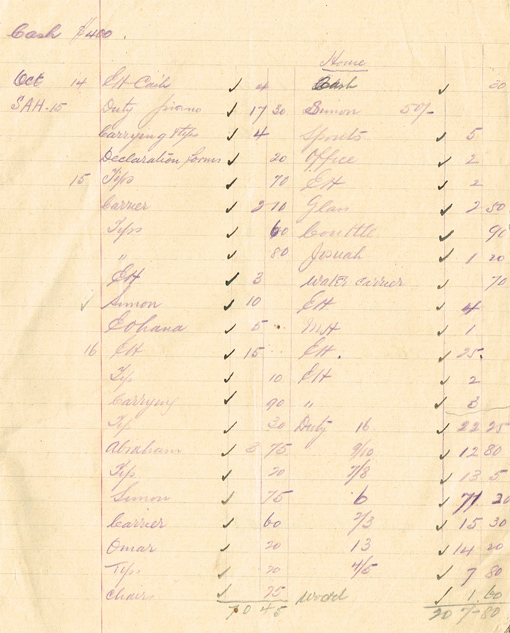 Cash $400.
Home
Oct 14 EH Cash ✓ 4 Cash ✓ 30
SAH. 15 Duty piano ✓ 17 30 Simon 50/-
Carrying & tips ✓ 4 Spouts ✓ 5
Declaration forms ✓ 20 Office ✓ 2
15 Tips ✓ 70 EH ✓ 2
Carrier ✓ 2 10 Glass ✓ 2 50
Tips ✓ 60 ✓ 90
" ✓ 80 Josuah ✓ 1 20
EH ✓ 3 Water carrier ✓ 70
✓ Simon ✓ 10 EH ✓ 4
Eohana ✓ 5 MH ✓ 1
16 EH ✓ 15 EH. ✓ 25.
Tip ✓ 10 EH ✓ 2
Carrying ✓ 90 " ✓ 3
Tip ✓ 30 Duty 16 ✓ 22 25
Abraham ✓ 3 75 9/10 ✓ 12 80
Tip ✓ 20 7/8 ✓ 13 5
Simon ✓ 75 6 ✓ 71 20
Carrier ✓ 60 2/3 ✓ 15 30
Omar ✓ 20 13 ✓ 14 20
Tips ✓ 20 4/5 ✓ 7 80
Chairs ✓ 25 Wood ✓ 1 60
70 45 207-80